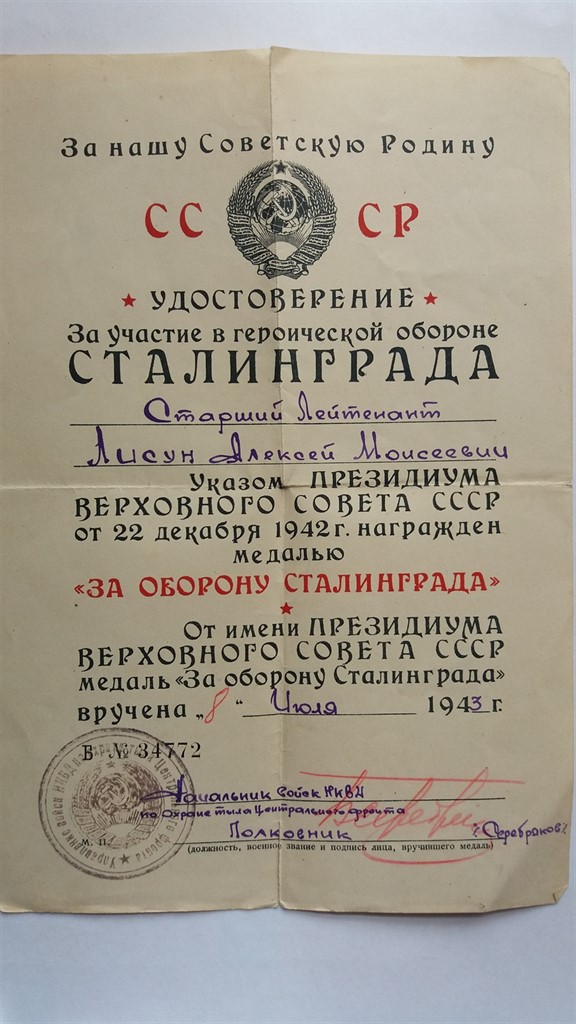 За нашу Советскую Родину
СССР
УДОСТОВЕРЕНИЕ
За участие в героической обороне
СТАЛИНГРАДА
Старший Лейтенант
Лисун Алексей Моисеевич
Указом ПРЕЗИДИУМА
ВЕРХОВНОГО СОВЕТА СССР
от 22 декабря 1942 г. награжден
медалью
«ЗА ОБОРОНУ СТАЛИНГРАДА»
От имени ПРЕЗИДИУМА
ВЕРХОВНОГО СОВЕТА СССР
медаль «За оборону Сталинграда»
вручена „8“ Июля 1943 г.
Б № 34772
Начальник Войск НКВД
по Охране тыла Центрального фронта
Полковник (Серебряков)
м. п.
(должность, военное звание и подпись лица, вручившего медаль)
Управление войск НКВД